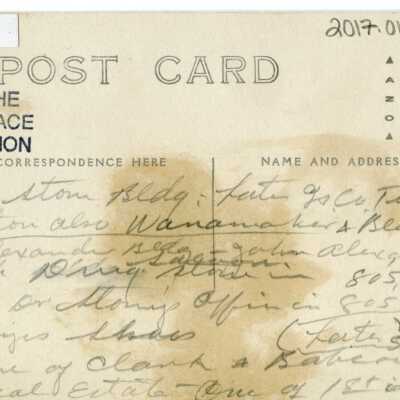 2017.01
POST CARD
HE
ACE
ION
AZO
CORRESPONDENCE HERE
NAME AND ADDRES
Stone Bldg: Later Js Co T
ton also Wanamaker & Bl
exander Bldg - John Alex
Saloon
Drug Store in 805
Dr Stonys Office in 805
Shoes (Later S
e of Clark & Babco
eal Estate - One of 1st